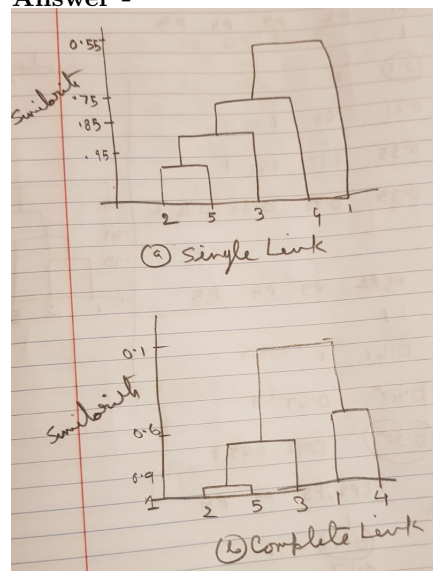 Answer -
0.55
Similarity
.75
.85
.95
2 5 3 4 1
(a) Single Link
0.1
Similarity
0.6
0.9
1
2 5 3 1 4
(b) Complete Link